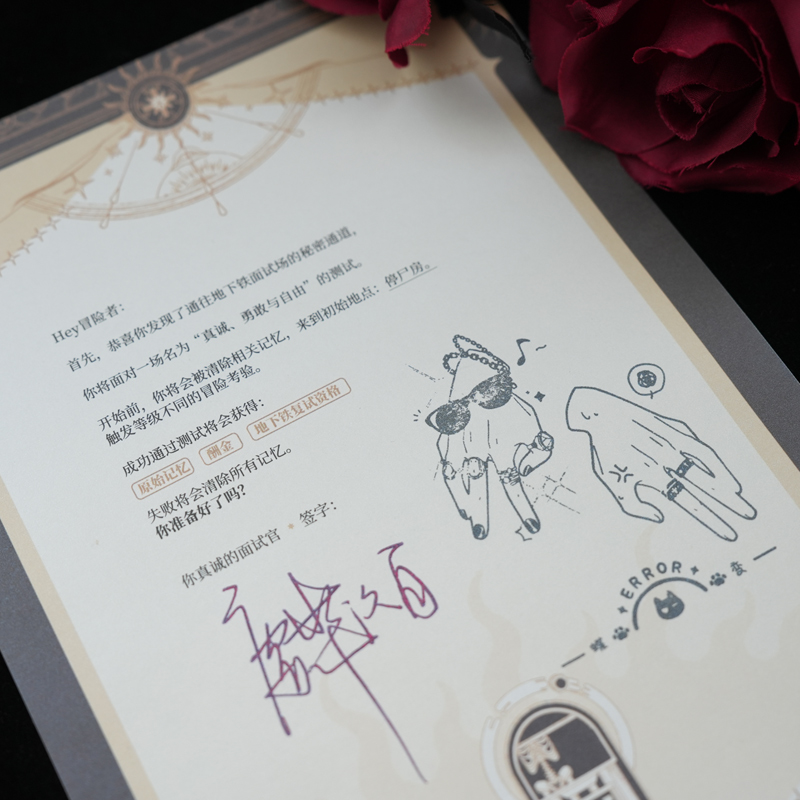 Hey冒险者：
首先，恭喜你发现了通往地下铁面试场的秘密通道，
你将面对一场名为“真诚、勇敢与自由”的测试。
开始前，你将会被清除相关记忆，来到初始地点：停尸房。
触发等级不同的冒险考验。
成功通过测试将会获得：
原始记忆 酬金 地下铁复试资格
失败将会清除所有记忆。
你准备好了吗？
你真诚的面试官 · 签字：
ERROR